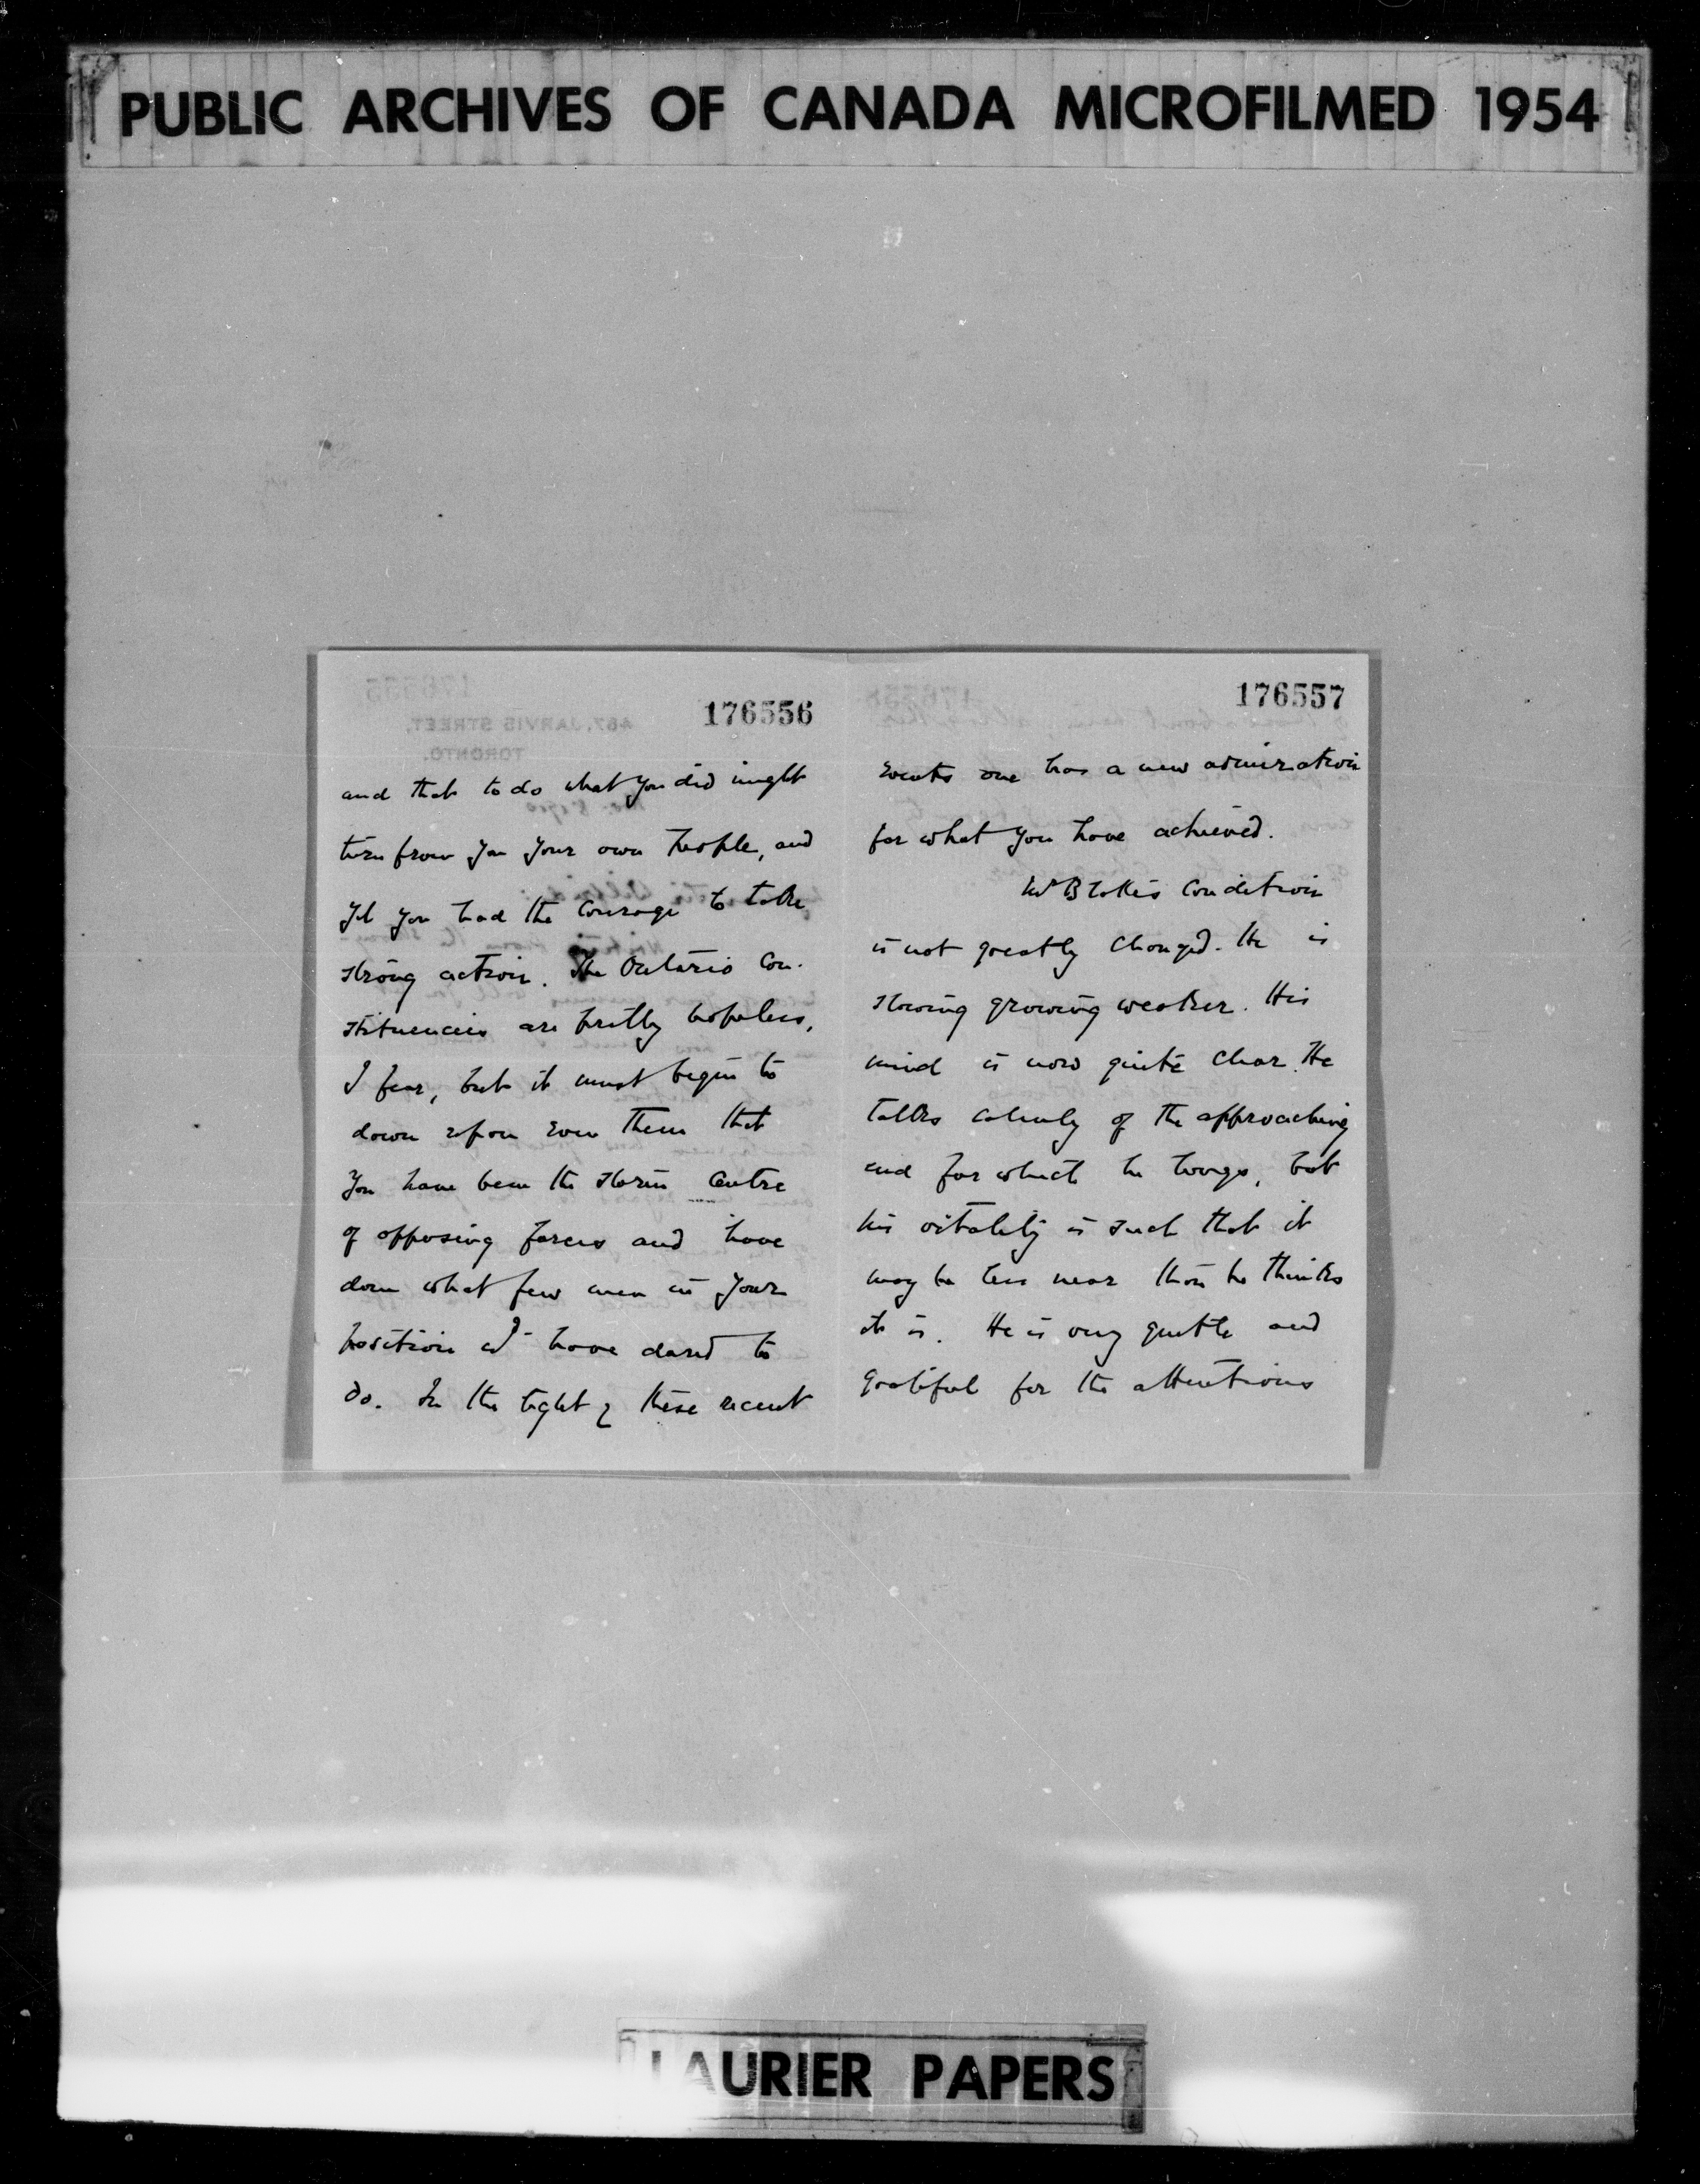 PUBLIC ARCHIVES OF CANADA MICROFILMED 1954
176556
and that to do what you did might
turn from you your own people, and
yet you had the courage to take
strong action. The Ontario con-
stituencies are pretty hopeless,
I fear, but it must begin to
dawn upon even them that
you have been the storm centre
of opposing forces and have
done what few men in your
position have dared to
do. In the light of these recent
176557
events one has a new admiration
for what you have achieved.
Mr Blake's condition
is not greatly changed. He is
slowing growing weaker. His
mind is now quite clear. He
talks calmly of the approaching
end for which he longs, but
his vitality is such that it
may be less near than he thinks
it is. He is very gentle and
grateful for the attentions
467, JARVIS STREET,
TORONTO.
LAURIER PAPERS